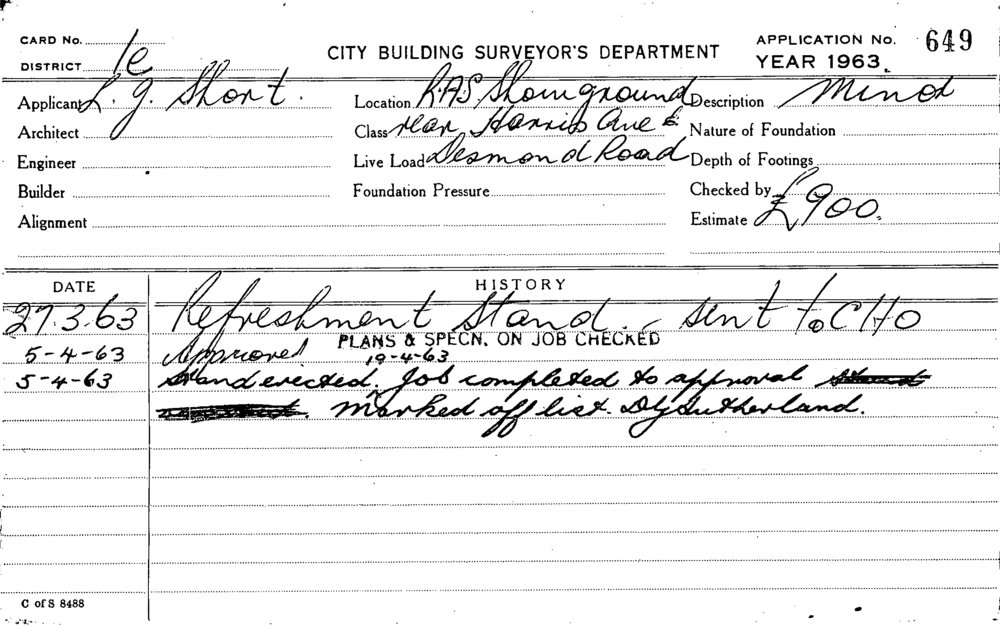 CARD No.
DISTRICT 1e
CITY BUILDING SURVEYOR'S DEPARTMENT
APPLICATION No. 649
YEAR 1963.
Applicant L. G. Short.
Location R.A.S. Showground
Description Minor
Architect
Class rear Harris Ave &
Nature of Foundation
Engineer
Live Load Desmond Road
Depth of Footings
Builder
Foundation Pressure
Checked by
Alignment
Estimate £900.
DATE HISTORY
27.3.63 Refreshment Stand. - sent to CHO
5-4-63 Approved PLANS & SPECN. ON JOB CHECKED
19-4-63
5-4-63 Stand erected. ^ Job completed to approval
Marked off list. Sutherland.
C of S 8488